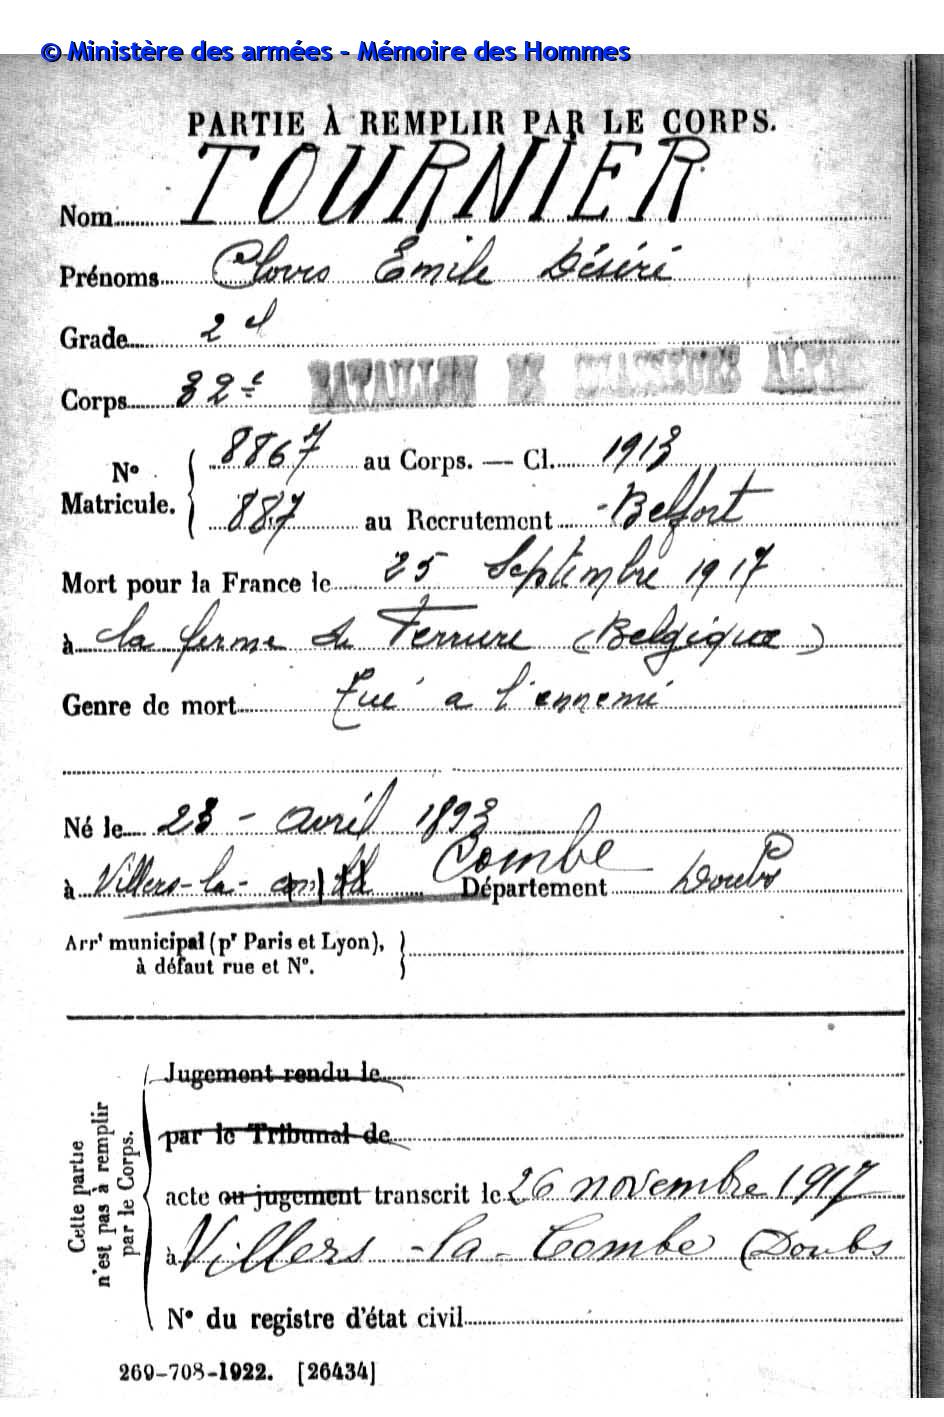 © Ministère des armées - Mémoire des Hommes
PARTIE À REMPLIR PAR LE CORPS.
Nom TOURNIER
Prénoms Clovis Emile Désiré
Grade 2 cl
Corps 32e BATAILLON DE CHASSEURS ALPINS
N° Matricule. 8867 au Corps. — Cl. 1913
887 au Recrutement Belfort
Mort pour la France le 25 Septembre 1917
à la ferme de Terrure (Belgique)
Genre de mort Tué a l'ennemi
Né le 23 - avril 1893
Combe
à Villers-la- Département Doubs
Arrt municipal (pr Paris et Lyon),
à défaut rue et N°.
Cette partie
n'est pas à remplir
par le Corps.
Jugement rendu le
par le Tribunal de
acte ou jugement transcrit le 26 novembre 1917
à Villers-la-Combe (Doubs
N° du registre d'état civil
269-708-1922. [26434]